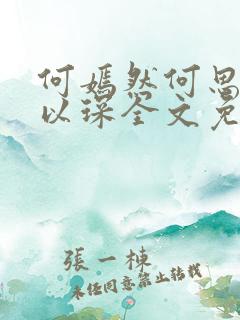 何嫣然何思
以琛全文免
張一棟
未经同意禁止转载